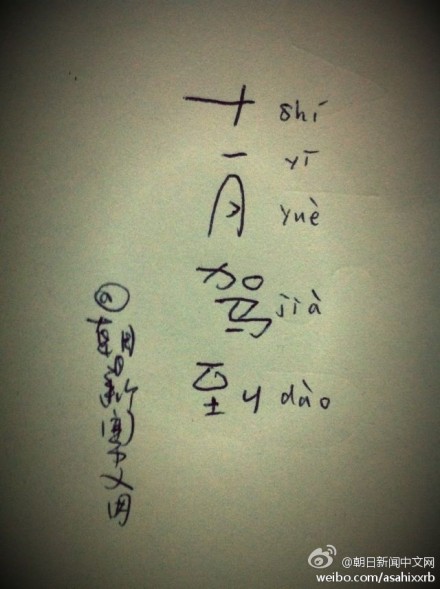 十 shí
一 yī
月 yuè
驾 jià
到 dào
@朝日新闻中文网
@朝日新闻中文网
weibo.com/asahixxrb